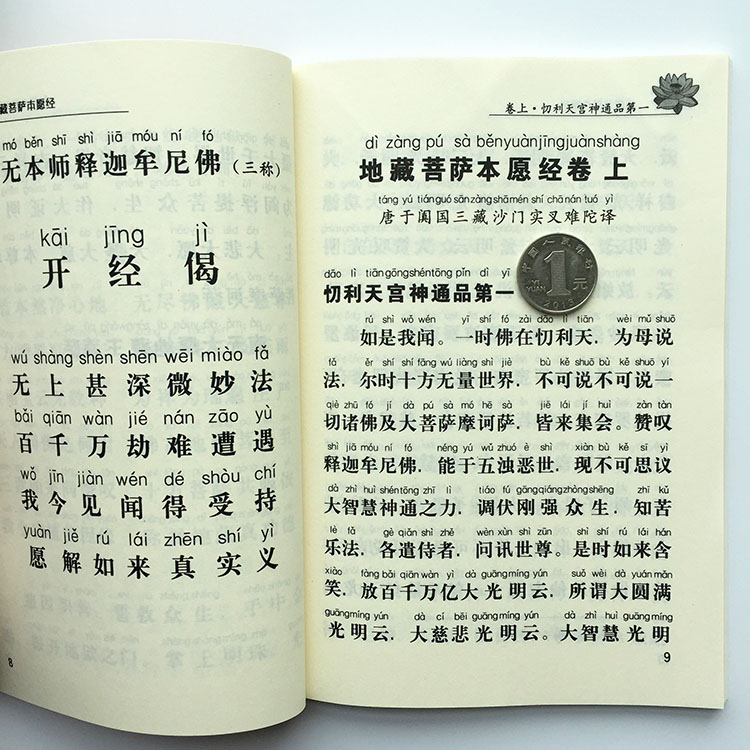 藏菩萨本愿经
mó běn shī shì jiā móu ní fó
无本师释迦牟尼佛(三称)
kāi jīng jì
开经偈
wú shàng shèn shēn wēi miào fǎ
无上甚深微妙法
bǎi qiān wàn jié nán zāo yù
百千万劫难遭遇
wǒ jīn jiàn wén dé shòu chí
我今见闻得受持
yuàn jiě rú lái zhēn shí yì
愿解如来真实义
8
卷上·忉利天宫神通品第一
dì zàng pú sà běnyuànjīngjuànshàng
地藏菩萨本愿经卷 上
táng yú tiánguósānzàngshāmén shí chānántuó yì
唐于阗国三藏沙门实叉难陀译
dāo lì tiāngōngshéntōng pǐn dì yī
忉利天宫神通品第一
中国人民银行
1元
YI YUAN
2013
rú shì wǒ wén yì shí fó zài dāo lì tiān wèi mǔ shuō
如是我闻。一时佛在忉利天．为母说
fǎ ěr shí shí fāng wú liàng shì jiè bù kě shuō bù kě shuō yí
法．尔时十方无量世界．不可说不可说一
qiè zhū fó jí dà pú sà mó hē sà jiē lái jí huì zàn tàn
切诸佛及大菩萨摩诃萨．皆来集会。赞叹
shì jiā móu ní fó néng yú wǔ zhuó è shì xiàn bù kě sī yì
释迦牟尼佛．能于五浊恶世．现不可思议
dà zhì huì shéntōng zhī lì tiáo fú gāngqiángzhòngshēng zhī kǔ
大智慧神通之力．调伏刚强众生．知苦
lè fǎ gè qiǎn shì zhě wèn xùn shì zūn shì shí rú lái hán
乐法．各遣侍者．问讯世尊。是时如来含
xiào fàng bǎi qiān wàn yì dà guāng míng yún suǒ wèi dà yuán mǎn
笑．放百千万亿大光明云．所谓大圆满
guāngmíng yún dà cí bēi guāngmíng yún dà zhì huì guāng míng
光明云．大慈悲光明云。大智慧光明
9